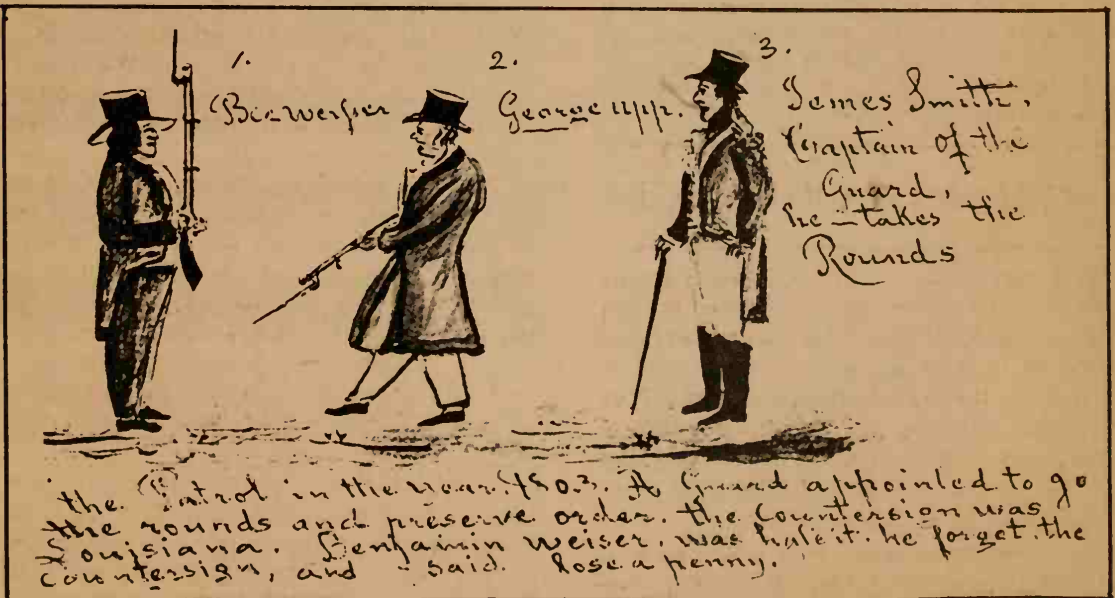 1.
George upp.
2.
3.
James Smith,
Captain of the
Guard,
he - takes the
Rounds
the Patrol in the year, 1803. A Guard appointed to go
the rounds and preserve order. the Countersign was,
Louisiana. Benjamin Weiser, was hale'it. he forgot the
Countersign, and - said. lose a penny.